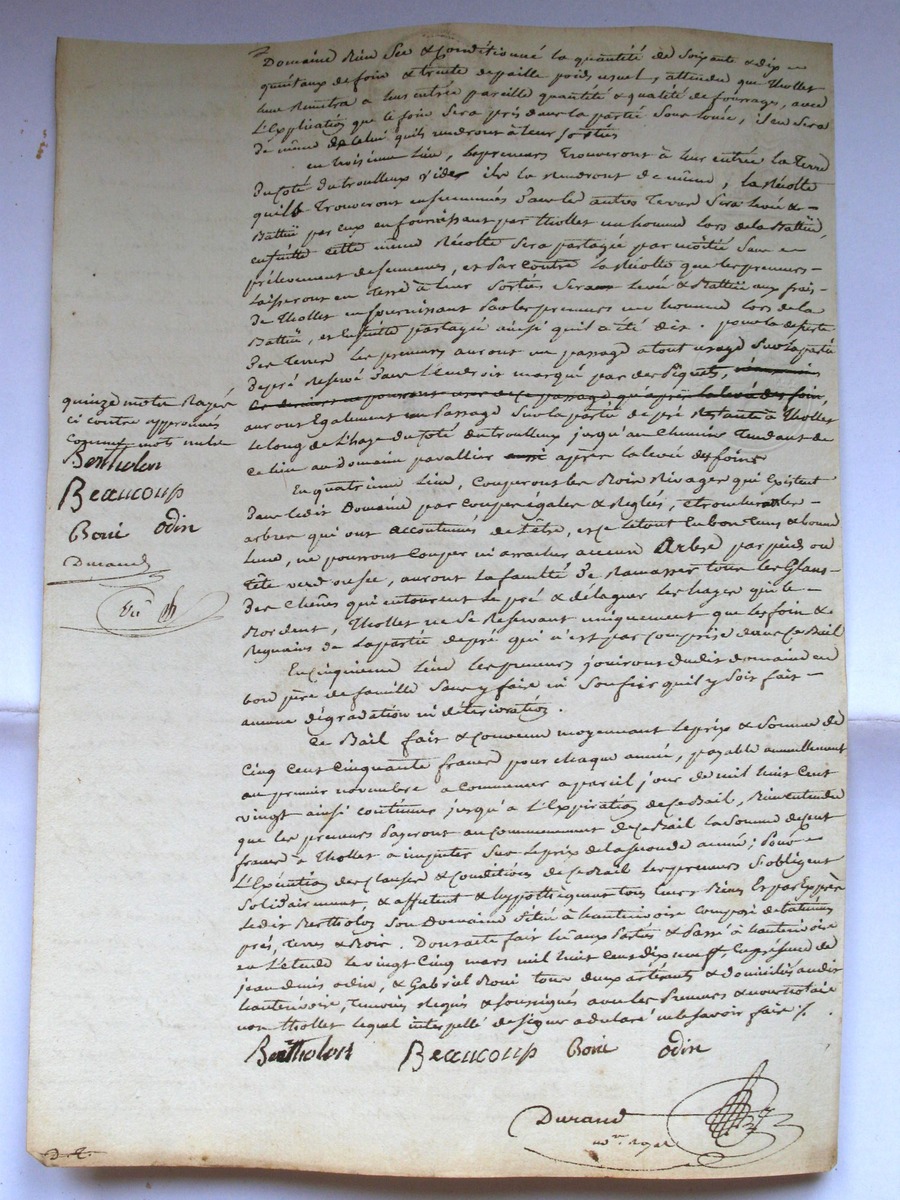 Domaine Rien Sec & Conditionné la quantité de Soixante & dix
quintaux de foin & trente de paille poids usuel, attendu que thollet
leur Remettra a leur entrée pareille quantité & qualité de fourrage, avec
L'Explication que le foin Sera pris dans la partie Sous Louée, il en Sera
de même de Celui quils rendront à leur Sorties
en troisieme Lieu, Les preneurs trouveront à leur entrée la terre
du Coté du troulleux vide, ils la rendront de même, la Récolte
quils trouveront ensemmées dans les autres terres Sera Levée &
Battüe par eux en fournissant par thollet un homme lors de la Battüe
ensuitte cette même Récolte Sera partagée par moitié Sans
prélevement de semences, et par Contre la Récolte que les preneurs
Laisseront en terre à leur Sorties Sera Levée & Battüe aux frais
de thollet en fournissant par les preneurs un homme lors de la
Battüe, et Ensuitte partagée ainsi quil a été dit. pour la deserte
des terres Les preneurs auront un passage a tout usage Sur la partie
de pré Reservé dans L'Endroit marqué par des Piquets,
ces derniers ne pourront user de ce passage qu'après la levée des foin,
auront Egalement un Passage Sur la partie de pré Restante à thollet
le long de L'haye du Coté du troulleux jusqu'au Chemin tendant de
Ce lieu au Domaine pavallier aussi après la levée des foins
En quatrieme Lieu, Couperont les Bois Rivages qui Existent
dans ledit Domaine par Coupes égales & Reglées, Etroncheront les
arbres qui ont accoutumés de L'être, et ce le tout en bon tems & bonne
Lune, ne pourront Couper ni arracher aucun Arbre par pieds ou
tête verd ou sec, auront la faculté de Ramasser tous les Glans
des Chênes qui entourent Le pré & élaguer les hayes qui le
Bordent, thollet ne Se Reservant uniquement que les foin &
Regains de La partie de pré qui n'est pas Comprise dans Ce Bail
En cinquieme Lieu Les preneurs jouiront dudit domaine en
bon père de famille Sans y faire ni Soufrir quil y Soit fait
aucune dégradation ni détérioration.
Ce Bail fait & Convenu moyennant Le prix & Somme de
Cinq Cent Cinquante francs pour chaque année, payable annuellement
au premier novembre a Commencer a pareil jour de mil huit Cent
vingt ainsi continuer jusqu'a L'Expiration de Ce Bail, Bien entendu
que les preneurs Payeront au Commencement de Ce Bail la Somme de Cent
francs à thollet a imputer Sur Le prix de la seconde année; Pour
L'Exécution des Clauses & Conditions de Ce Bail Les preneurs S'obligent
Solidairement, & affectent & hyppothèquent tous leurs Biens Et par Exprès
Ledit Bertholon Son Domaine Situé à hauterivoire Composé de batimens
prés, terres & Bois. Dont acte fait Lû aux Parties & Passé à hauterivoire
en L'etude le vingt Cinq mars mil huit Cens dix neuf, En présence de
jean denis odin, & Gabriel Boni tous deux & domiciliés audit
hauterivoire, témoins Requis & Soussignés avec les Preneurs & nous notaire
non thollet lequel interpellé de Signer a déclaré ne le Savoir faire /.
Bertholon Beaucoup Boni odin
Durand
nore royal
quinze mots Rayés
ci contre approuvés
comme mots nuls
Bertholon
Beaucoup
Boni odin
Durand
D. E.